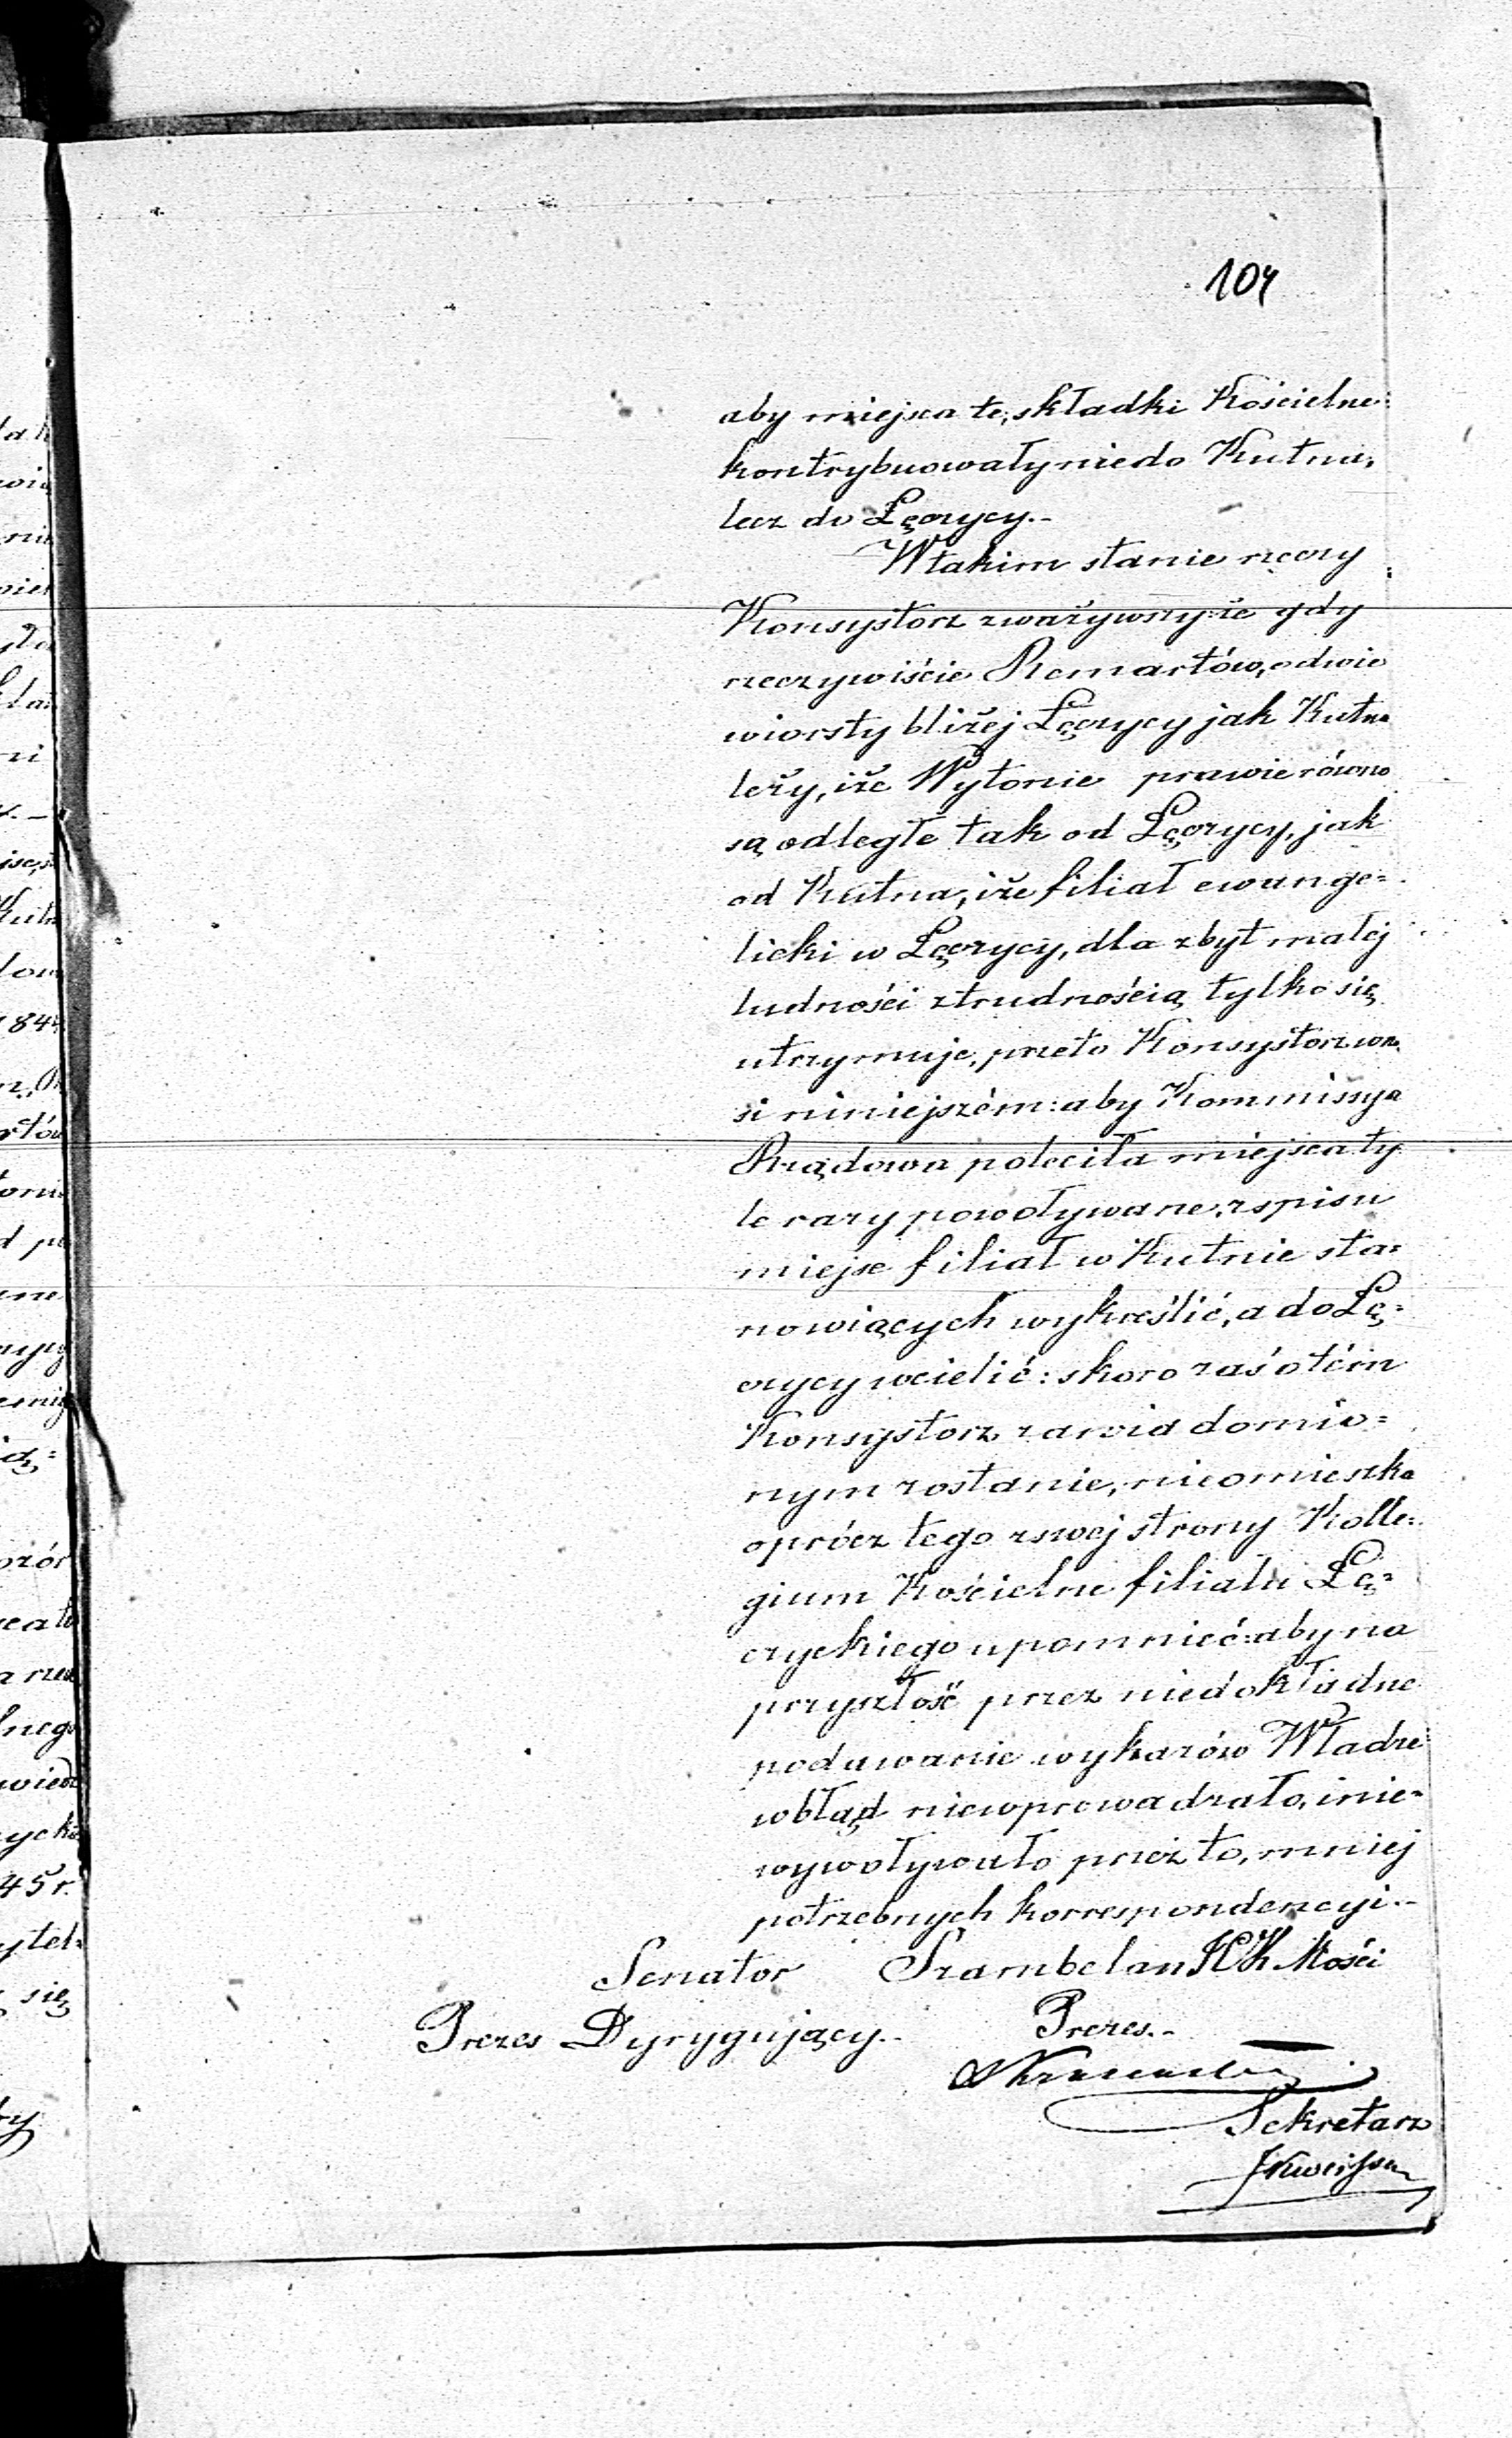 104
aby miejsca te, składki Kościelne
kontrybuowały nie do Kutna,
lecz do Łęczycy.-
W takim stanie rzeczy
Konsystorz zważywszy: że gdy
rzeczywiście Remartów, o dwie
wiorsty bliżej Łęczycy jak Kutna
leży, iże Wytonie prawie równo
są odległe tak od Łęczycy, jak
od Kutna, iże filiał ewange=
licki w Łęczycy, dla zbyt małej
ludności z trudnością tylko się
utrzymuje, przeto Konsystorz wno
si niniejszém: aby Kommissya
Rządowa poleciła miejsca ty
le razy powoływane, z spisu
miejsc filiał w Kutnie sta=
nowiących wykreślić, a do Łę=
czycy wcielić: skoro zaś o tém
Konsystorz zawiadomio=
nym zostanie, nieomieszka
oprócz tego z swej strony Kolle=
gium Kościelne filialu Łę=
czyckiego upomnieć: aby na
przyszłość przez niedokładne
podawanie wykazów Władze
w błąd niewprowadzało, i nie=
wywoływało przez to, mniej
potrzebnych korrespondencyi.-
Senator Szambelan JCK Mości
Prezes Dyrygujący.- Prezes.-
Sekretarz